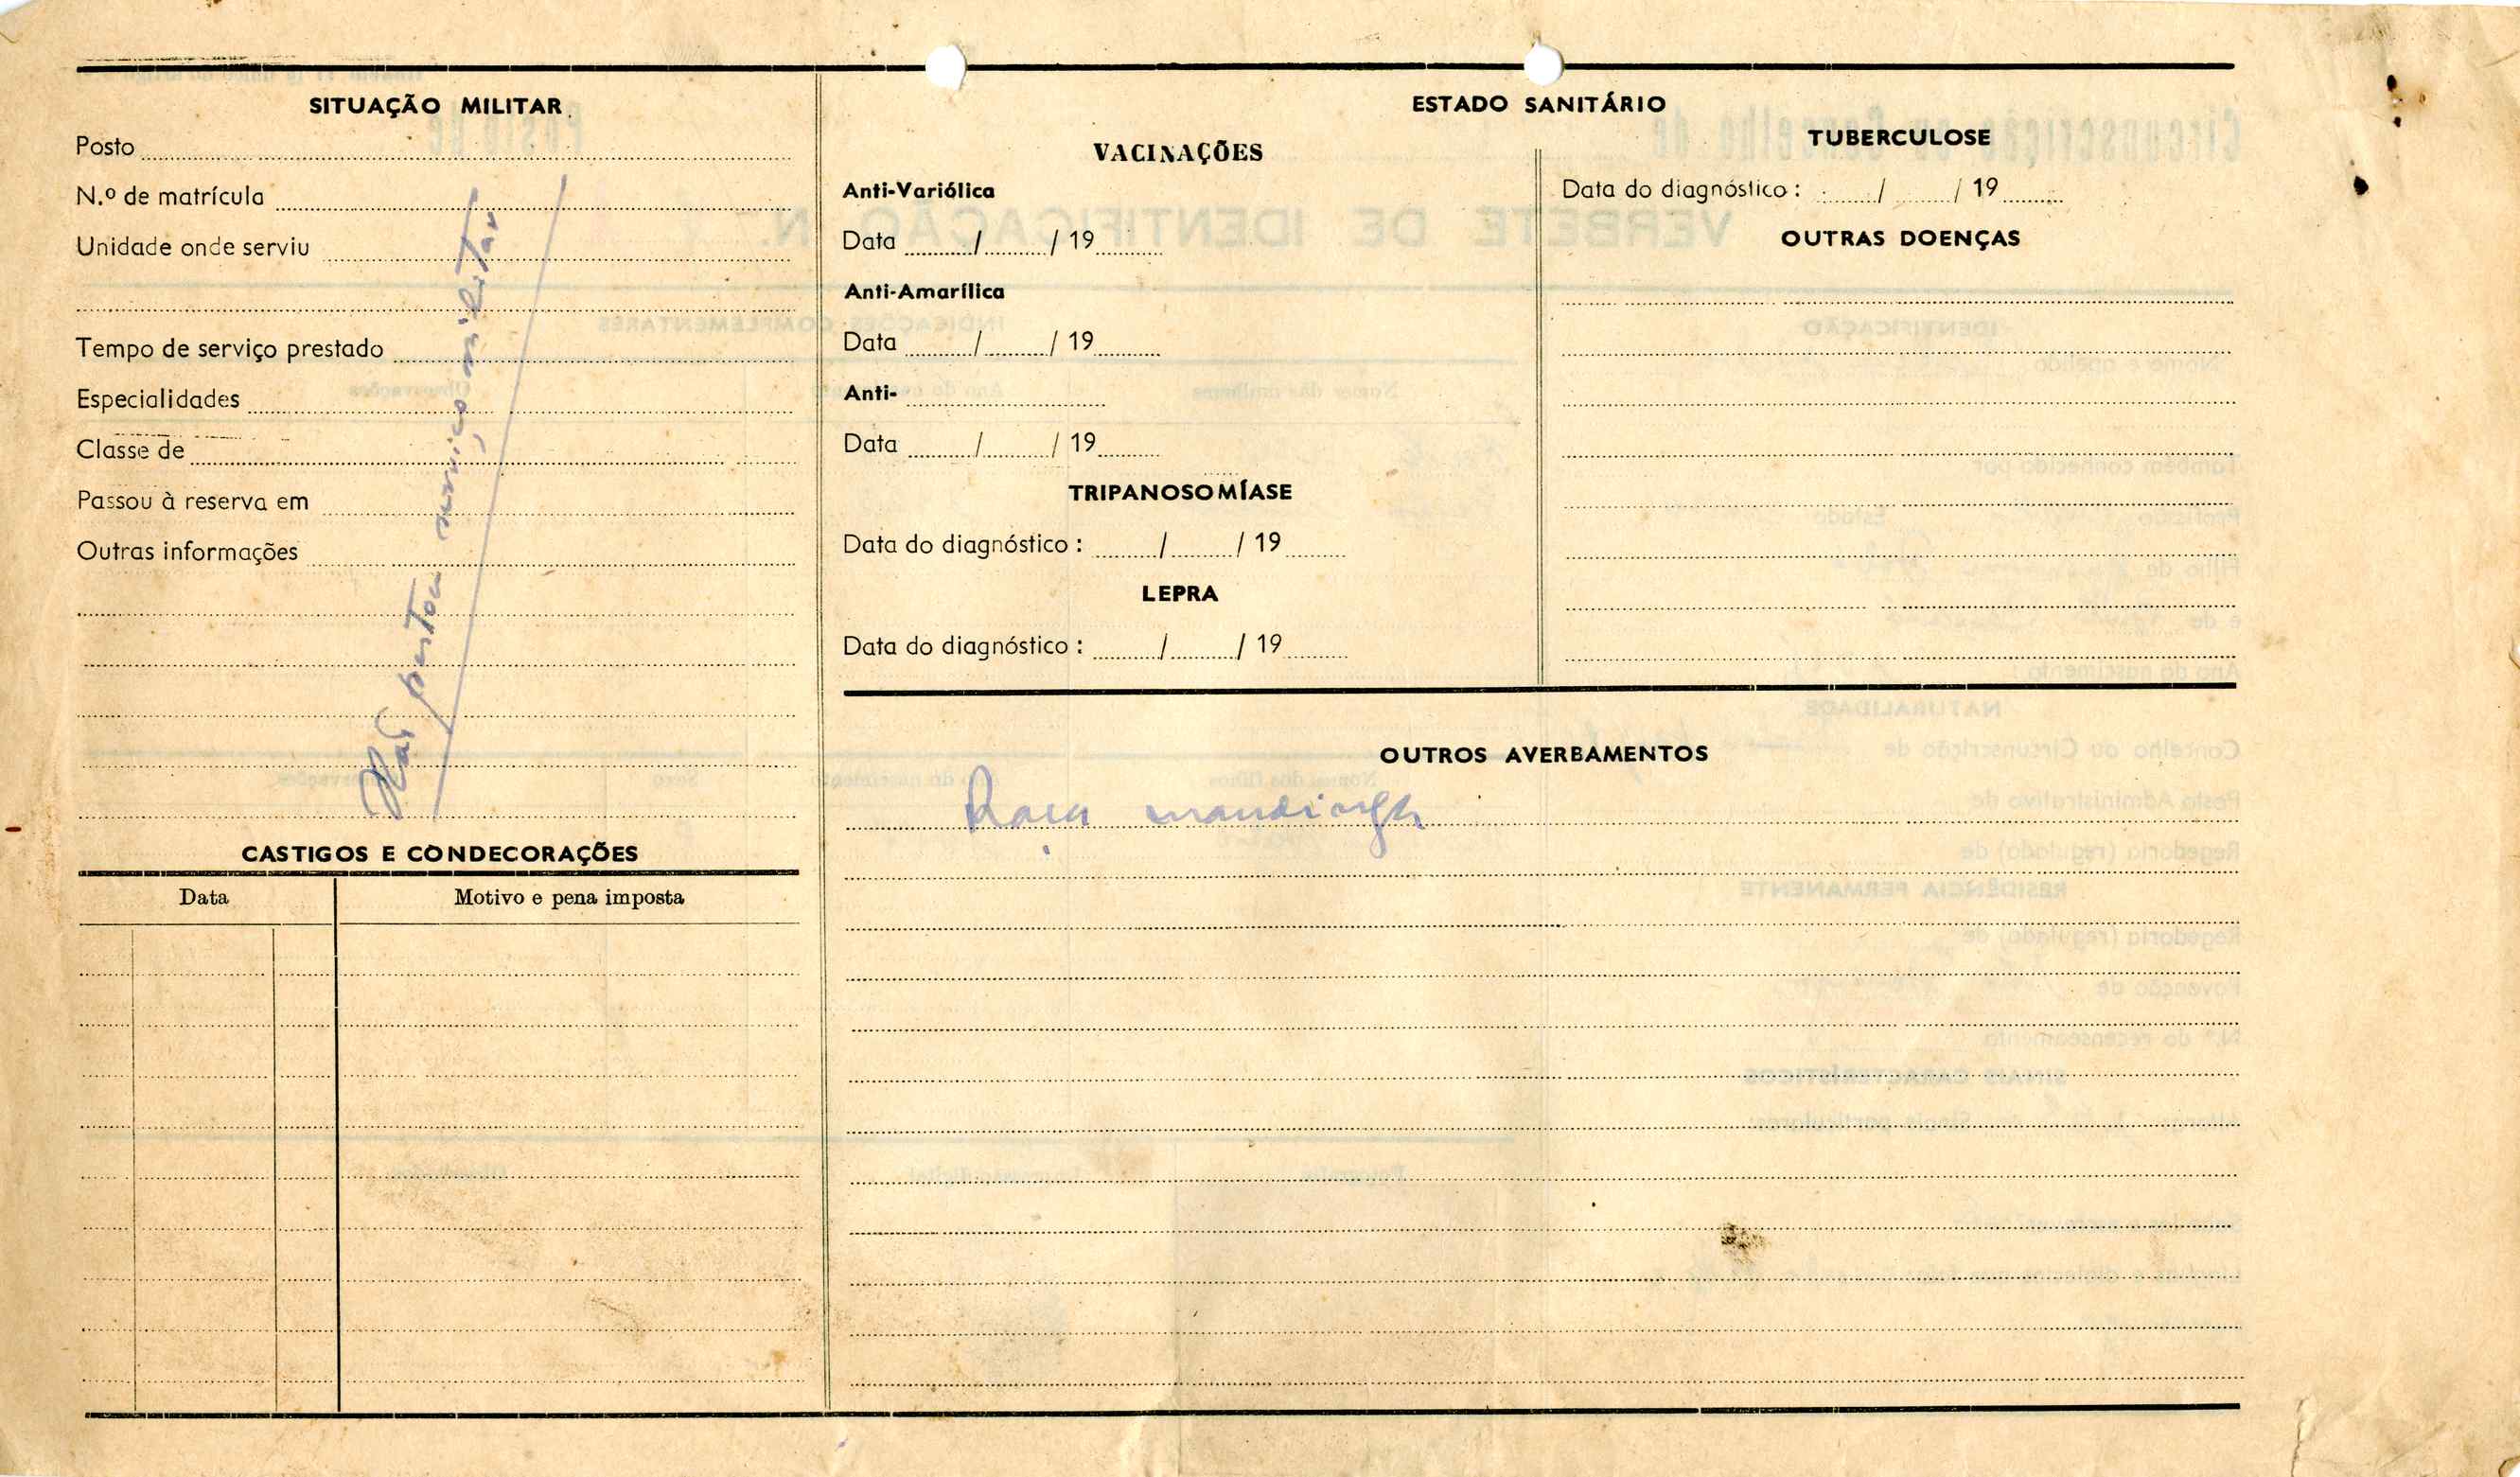 SITUAÇÃO MILITAR
Posto
N.º de matrícula
Unidade onde serviu
Tempo de serviço prestado
Especialidades
Classe de
Passou à reserva em
Outras informações
Não prestou serviço militar
CASTIGOS E CONDECORAÇÕES
Data Motivo e pena imposta
ESTADO SANITÁRIO
VACINAÇÕES
Anti-Variólica
Data / / 19
Anti-Amarílica
Data / / 19
Anti-
Data / / 19
TRIPANOSOMÍASE
Data do diagnóstico : / / 19
LEPRA
Data do diagnóstico : / / 19
TUBERCULOSE
Data do diagnóstico : / / 19
OUTRAS DOENÇAS
OUTROS AVERBAMENTOS
Raça